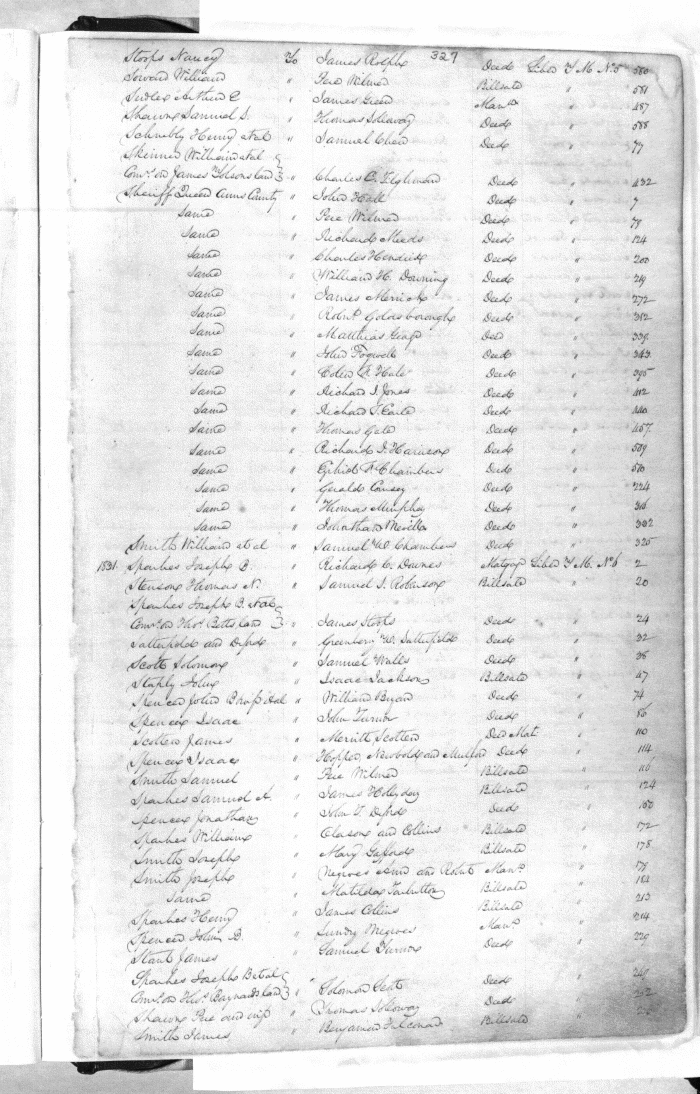 327
Stoops Nancy To James Rolph Deed Liber T M No 5 580
Seward William " Pere Wilmer Billsale " 581
Arthur E " James Green Manⁿ " 487
Shawn Samuel S. " Thomas Sollaway Deed " 588
Schnebly Henry et al " Samuel Chew Deed " 77
Skinner William et al
Comˢ on James Tolsons land " Charles C. Tilghman Deed " 432
Sheriff Queen Anns County " John Hall Deed " 7
Same " Pere Wilmer Deed " 78
Same " Richard Meeds Deed " 124
Same " Charles Hendrix Deed " 200
Same " William H. Downing Deed " 219
Same " James Merrick Deed " 272
Same " Robᵗ Goldsborough Deed " 312
Same " Matthias George Deed " 339
Same " John Fogwell Deed " 343
Same " Hale Deed " 395
Same " Richard I. Jones Deed " 412
Same " Richard T. Earle Deed " 440
Same " Thomas Gale Deed " 457
Same " Richard I. Harrison Deed " 509
Same " Ezekiel F. Chambers Deed " 510
Same " Gerald Coursey Deed " 224
Same " Thomas Murphy Deed " 316
Same " Johnathan Deed " 332
Smith William et al " Samuel W. Chambers Deed " 325
1831. Sparkes Joseph B. " Richard C. Downes Motgage Liber T M. No 6 2
Stenson Thomas N. " Samuel S. Robinson Billsale " 20
Sparkes Joseph B. et al
Comˢ on Thoˢ Betts land " James Stoops Deed " 24
Satterfield and " Greenberry W. Satterfield Deed " 32
Scott Solomon " Samuel Walls Deed " 36
Staply John " Isaac Jackson Billsale " 47
Spencer John et al " William Bryan Deed " 74
Spencer Isaac " John Turner Deed " 86
Scotten James " Merritt Scotten Ded Mot " 110
Spencer Isaac " Hopper, Newbold and Deed " 114
Smith Samuel " Pere Wilmer Billsale " 116
Sparkes Samuel A. " James Holliday Billsale " 124
Spencer Jonathan " John T. Deed " 160
Sparkes William " Clason and Collins Billsale " 172
Smith Joseph " Mary Gafford Billsale " 178
Smith Joseph " Negroes Ann and Robert Manⁿ " 179
Same " Matilda Tarbutton Billsale " 182
Sparkes Henry " James Collins Billsale " 213
Spencer John B. " Sundry Negroes Manⁿ " 214
Start James " Samuel Turner Deed " 220
Sparkes Joseph B et al
Comˢ on Thoˢ Baynards land " Solomon Deed " 249
Shawn Pere and wife " Thomas Sollaway Deed "
Smith James " Benjamin Falconar Billsale "